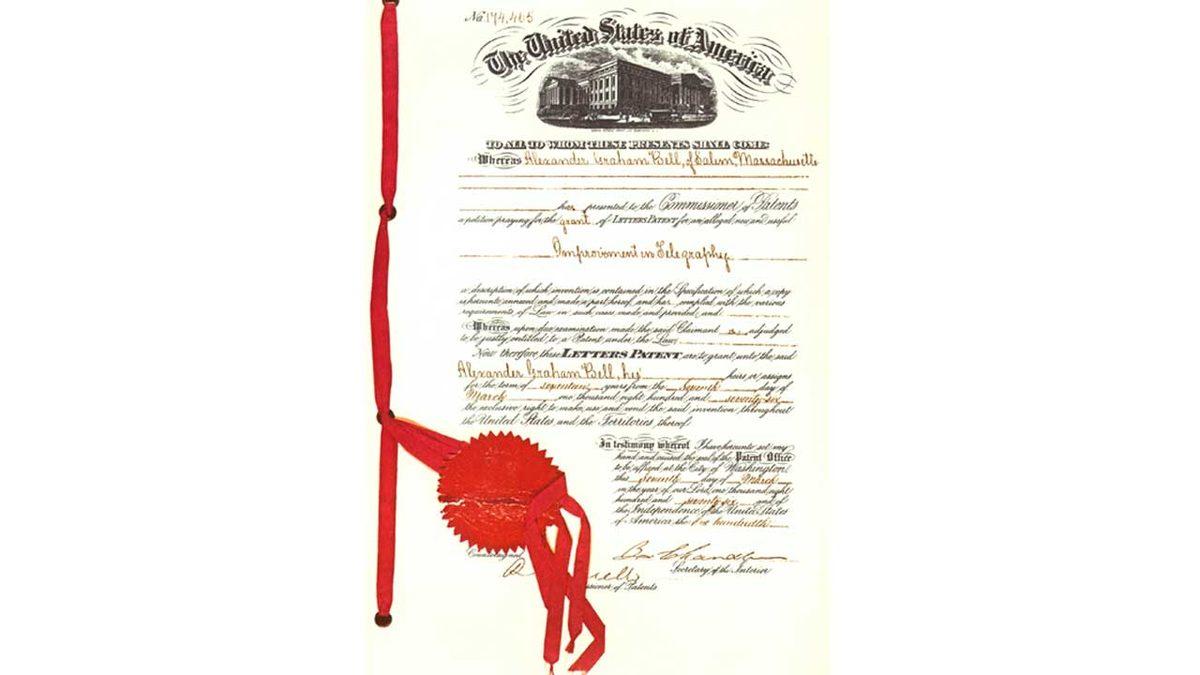 No 174,465
The United States of America
TO ALL TO WHOM THESE PRESENTS SHALL COME:
Whereas Alexander Graham Bell, of Salem, Massachusetts
has presented to the Commissioner of Patents
a petition praying for the grant of LETTERS PATENT for an alleged new and useful
Improvement in Telegraphy
a description of which invention is contained in the Specification of which a copy
is hereunto annexed and made a part hereof, and has complied with the various
requirements of Law in such cases made and provided, and
Whereas upon due examination made the said Claimant is adjudged
to be justly entitled to a Patent under the Law.
Now therefore these LETTERS PATENT are to grant unto the said
Alexander Graham Bell, his heirs or assigns
for the term of seventeen years from the seventh day of
March one thousand eight hundred and seventy-six
the exclusive right to make, use and vend the said invention throughout
the United States and the Territories thereof.
In testimony whereof I have hereunto set my
hand and caused the seal of the Patent Office
to be affixed at the City of Washington
this seventh day of March
in the year of our Lord one thousand eight
hundred and seventy-six and of
the Independence of the United States
of America the one hundredth
Countersigned
Secretary of the Interior
of Patents